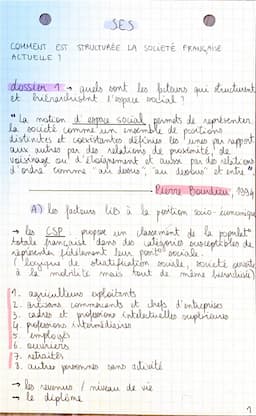 SES
COMMENT EST STRUCTURÉE LA SOCIÉTÉ FRANÇAISE
ACTUELLE ?
dossier 1 → quels sont les facteurs qui structurent
et hiérarchisent l'espace social ?
" la notion d'espace social permet de représenter
la société comme un ensemble de positions
distinctes et coexistantes définies les unes par rapport
aux autres par des relations de proximité, de
voisinage ou d'éloignement et aussi par des relations
d'ordre comme "au dessus", "au dessous" et entre ".
Pierre Bourdieu, 1994
A) les facteurs liés à la position socio-économique
→ les CSP : propose un classement de la populat°
totale française dans des catégories susceptibles de
représenter fidèlement leur post° sociale.
(logique de stratification sociale, société ouverte
à la mobilité mais tout de même hiérarchisée)
1. agriculteurs exploitants
2. artisans, commerçants et chefs d'entreprises
3. cadres et professions intellectuelles supérieures
4. professions intermédiaires
5. employés
6. ouvriers
7. retraités
8. autres personnes sans activité
→ les revenus / niveau de vie
→ le diplôme
1